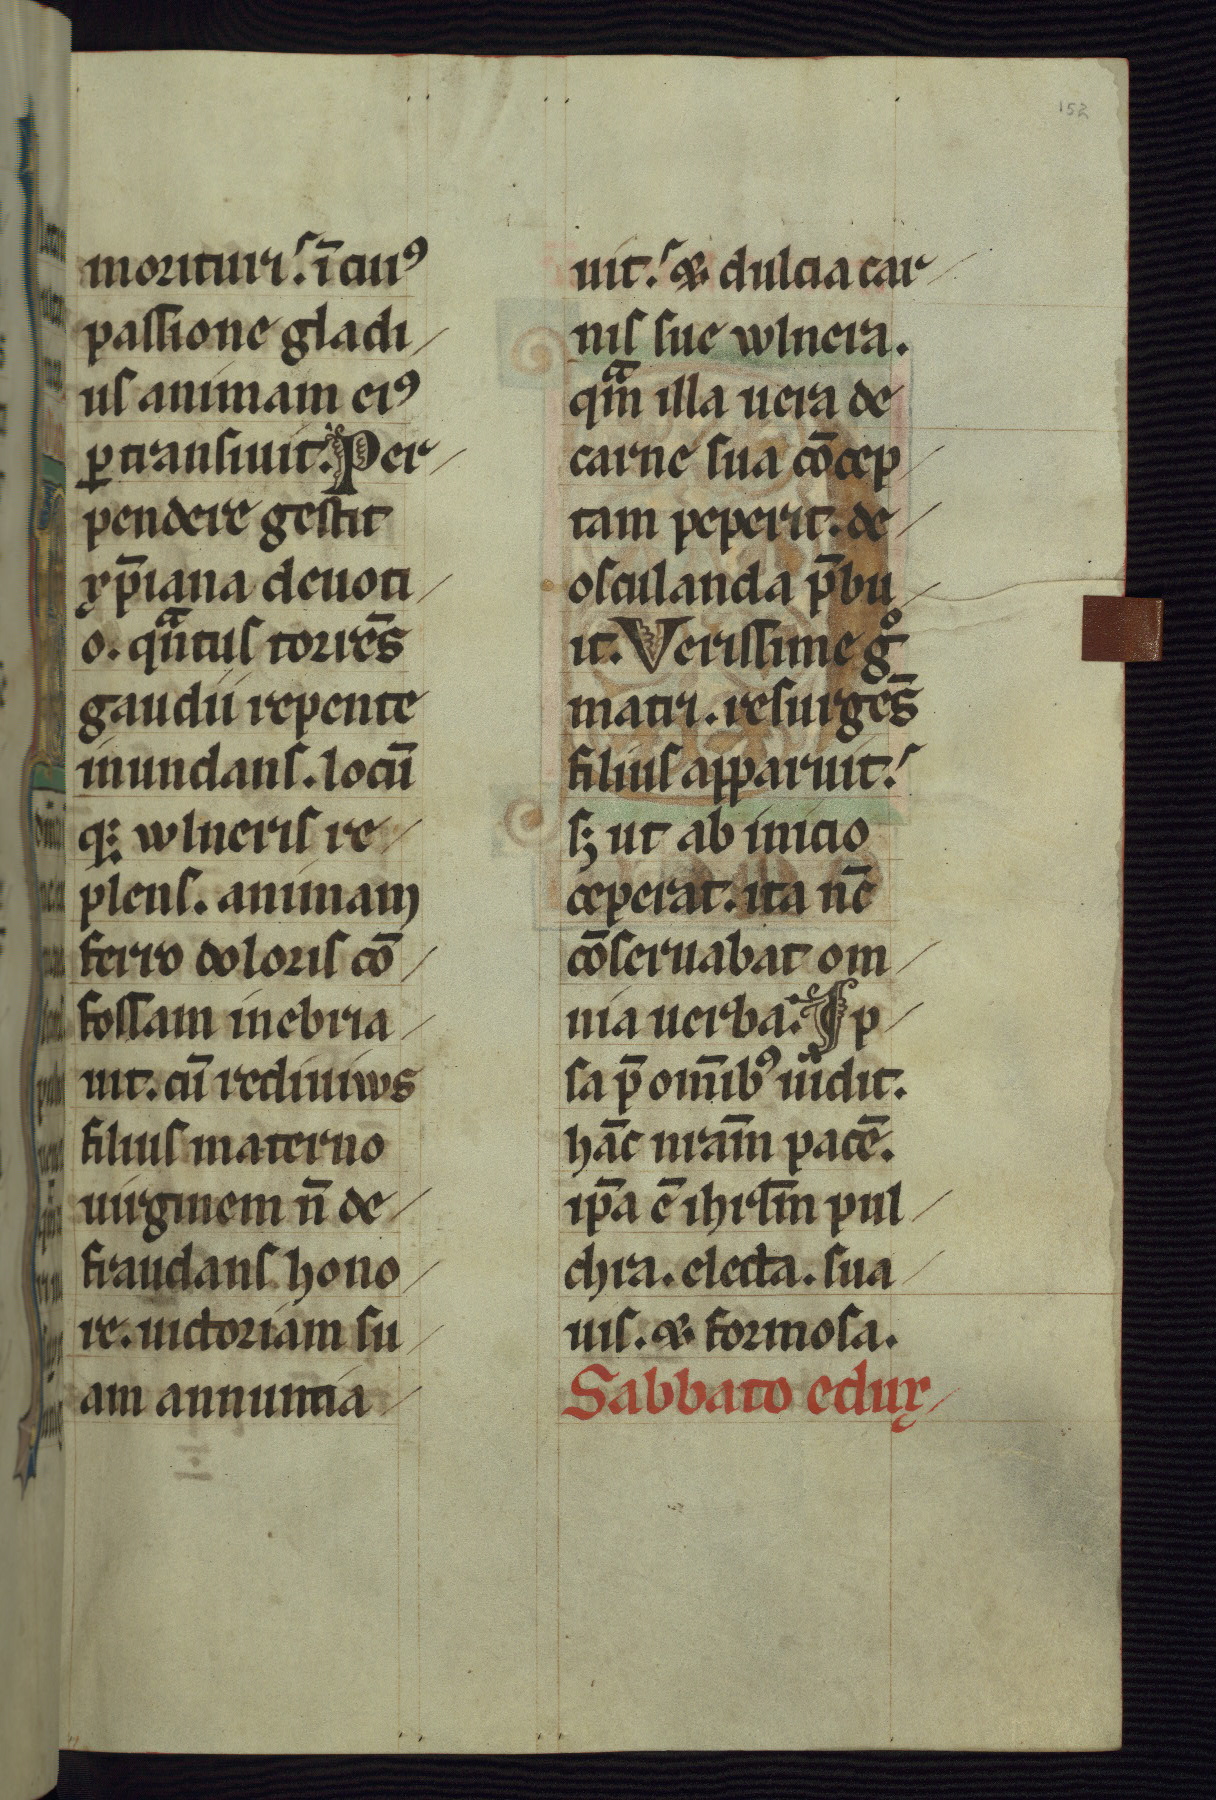 152
morituri. ī cuiꝰ
passione gladi
us animam eiꝰ
ꝑtransiuit. Per
pendere gestit
xp̄iana deuoti
o. qͣntus torrēs
gaudii repente
inundans. locū
qꝫ wlneris re
plens. animam
ferro doloris cō
fossam inebria
uit. cū rediuiws
filius materno
uirginem n̄ de
fraudans hono
re. uictoriam su
am annuntia
uit. & dulcia car
nis sue wlnera.
qͣm illa uera de
carne sua cōcep
tam peperit. de
osculanda p̄bu
it. Verissime gͦ
matri. resurgēs
filius apparuit.
sꝫ ut ab inicio
ceperat. ita nc̄
cōseruabat om
nia uerba. Ip
sa p̄ omībꝰ uidit.
hāc nr̄am pacē.
ip̄a ē ihrl̄m pul
chra. electa. sua
uis. & formosa.
Sabbato eduꝝ